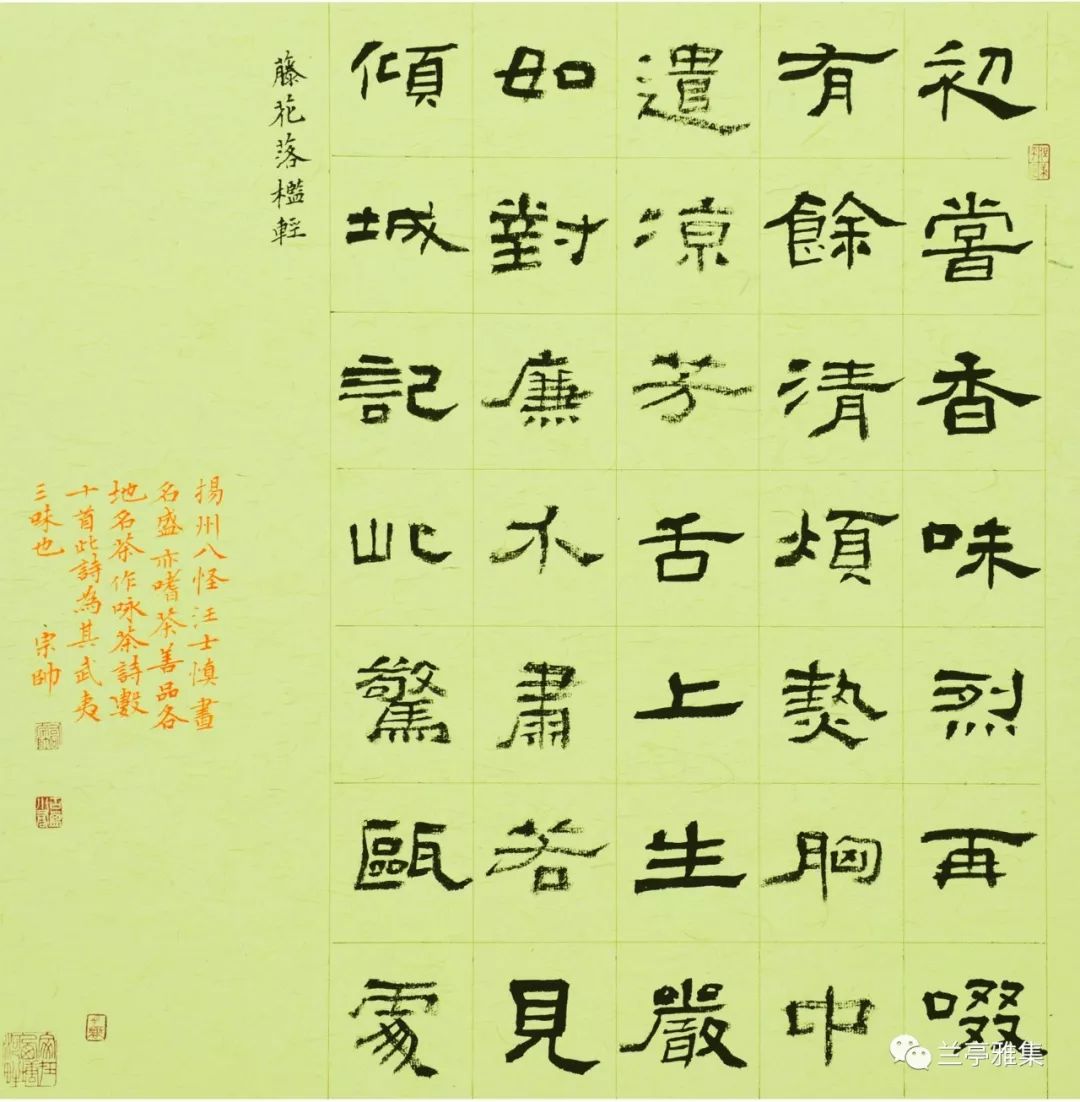 初嘗香味烈再啜
有餘清煩熱胸中
遣凉芳舌上生嚴
如對廉介肅若見
傾城記此驚甌處
藤花落檻輕
揚州八怪汪士慎畫
名盛亦嗜茶善品各
地名茶作咏茶詩數
十首此詩為其武夷
三味也 宗帥
兰亭雅集